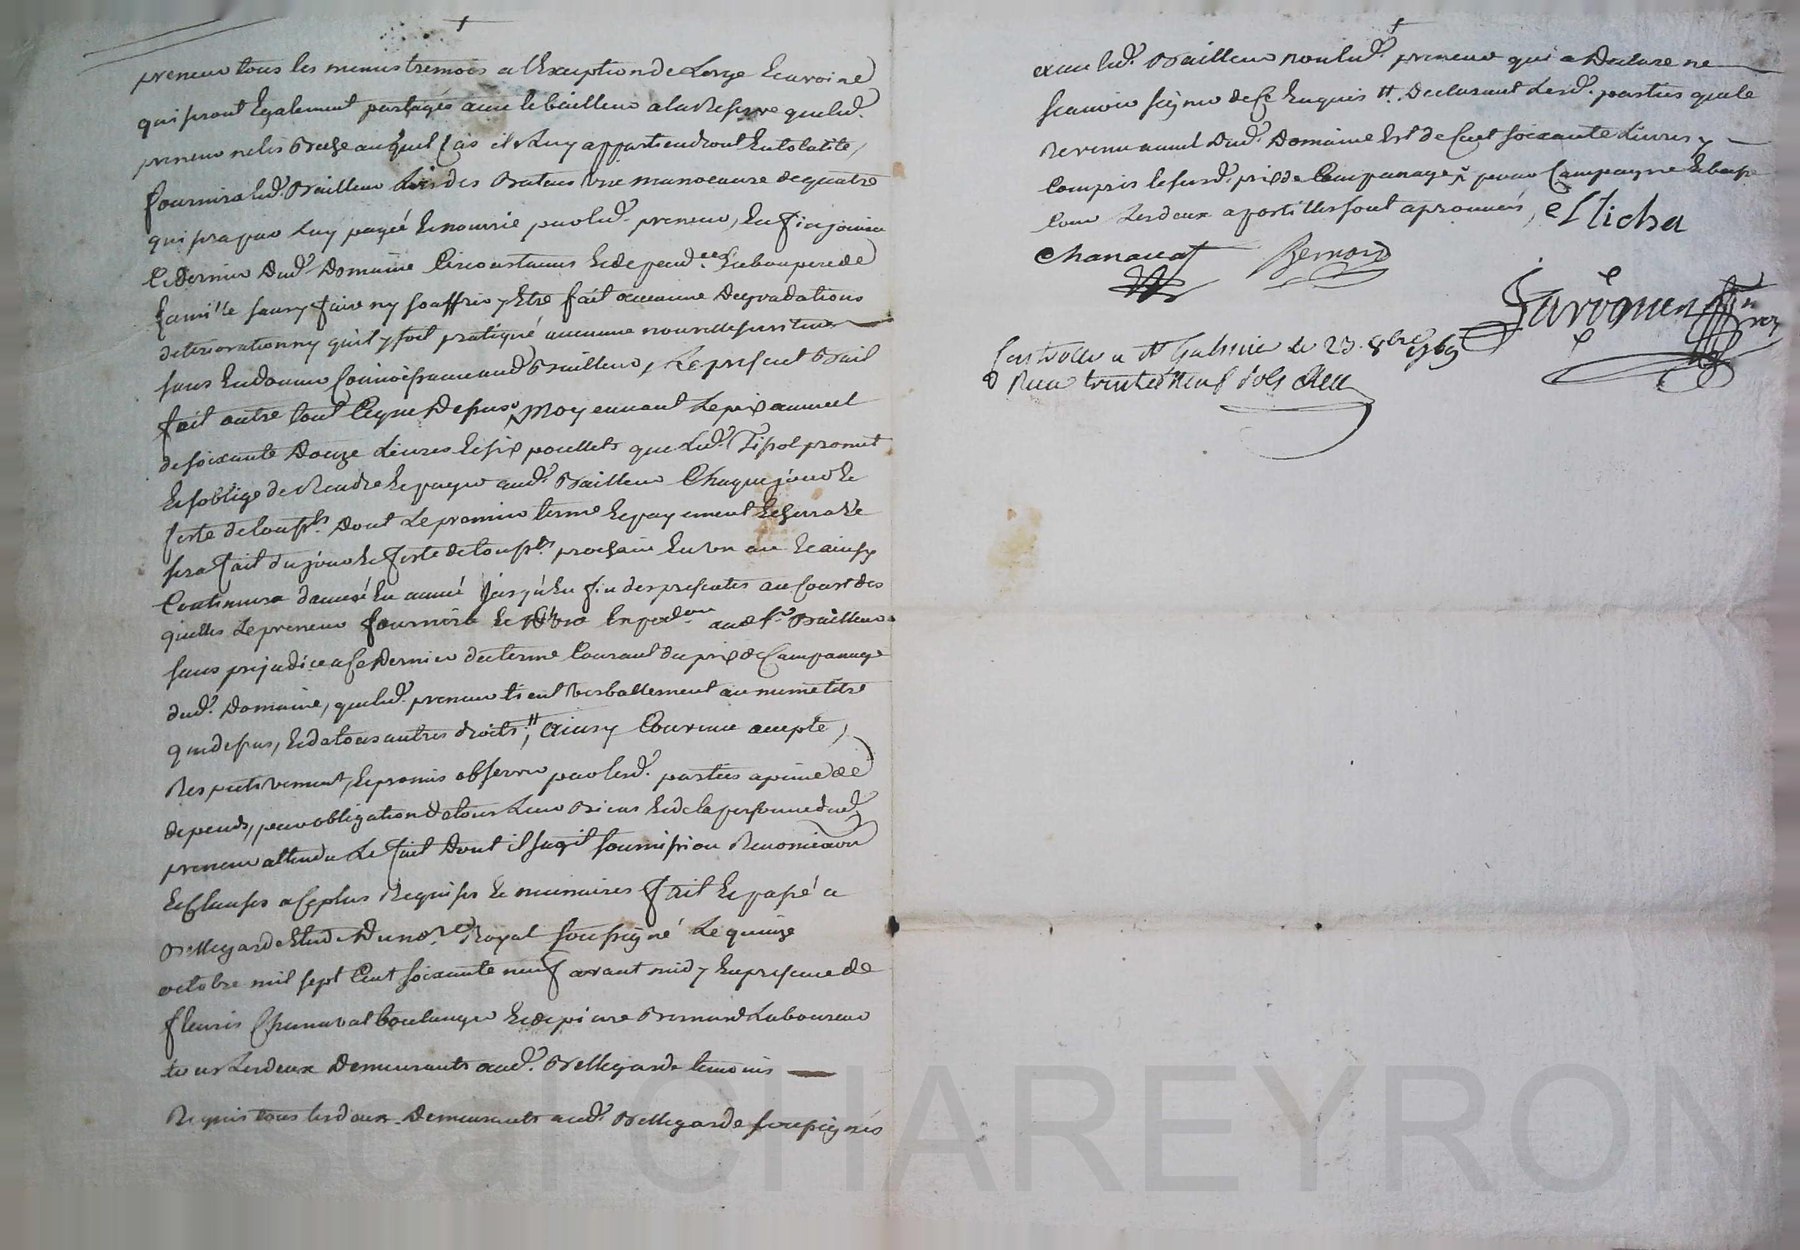 preneur tous les menus tremois a l'Exception de Lorge Et avoine
qui seront Egalement partagés avec le bailleur a la Reserve que led.
preneur ne les Bleze auquel Cas ils Luy appartiendront En totalité,
fournira led. Bailleur Lors des une manoeuvre de quatre
qui sera par Luy payée Et nourrie par led. preneur, En fin jouira
Ce Dernier Dud. Domaine Circonstances Et depend.ces En bon pere de
famille sans y faire ny souffrir y Etre fait aucune Degradations
deterioration ny qu'il y soit pratiqué aucune nouvelle servitude
sans En donner Connoissance aud. Bailleur, Le present Bail
fait outre tout Ceque Dessus, Moyennant Le prix annuel
de soixante Douze Livres Et six poullets que Led. Tissot promet
Et s'oblige de Rendre Et payer aud. Bailleur Chaque jour Et
feste de touss.ts Dont Le premier terme Et payement
sera fait du jour Et feste de touss.ts prochain En un an Et ainsy
Continuera dannée En année jusqu'En fin des presentes au Court des
quelles Le preneur fournira aud. S.r Bailleur
sans prejudice a Ce Dernier du terme Courant du prix de Campanage
dud. Domaine, que led. preneur tient Verballement au meme titre
que dessus, Et da tous autres droits, # Ainsy Convenu accepté,
Respectivement, Et promis observer par lesd. parties a peine de
depends, par obligation de tous Leur Biens Et de la personne dud.
preneur attendu Le fait Dont il s'agit soumission Renonciation
Et Clauses a Ce plus Requises Et necessaires fait Et passé a
Bellegarde Etude Du no.re Royal soussigné Le quinze
octobre mil sept Cent soixante neuf avant midy En presence de
fleuris Chanavat boulanger Et de pierre Bernard Laboureur
tous Lesdeux Demeurants aud. Bellegarde temoins
Requis tous lesdeux Demeurants aud. Bellegarde soussignés
avec led. Bailleur non led. preneur qui a Declaré ne
scavoir signer de Ce Enquis #. Declarant Lesd. parties que le
revenu annuel Dud. Domaine Est de Cent soixante Livres y
Compris le susd. prix de Campanage,
Lesdeux apostilles sont aprouvées,
Micha
Chanavat
Bernard
Javognen
Controllé a St Galmier le 23. 8bre 1769
Recu trente neuf sols
Pascal CHAREYRON